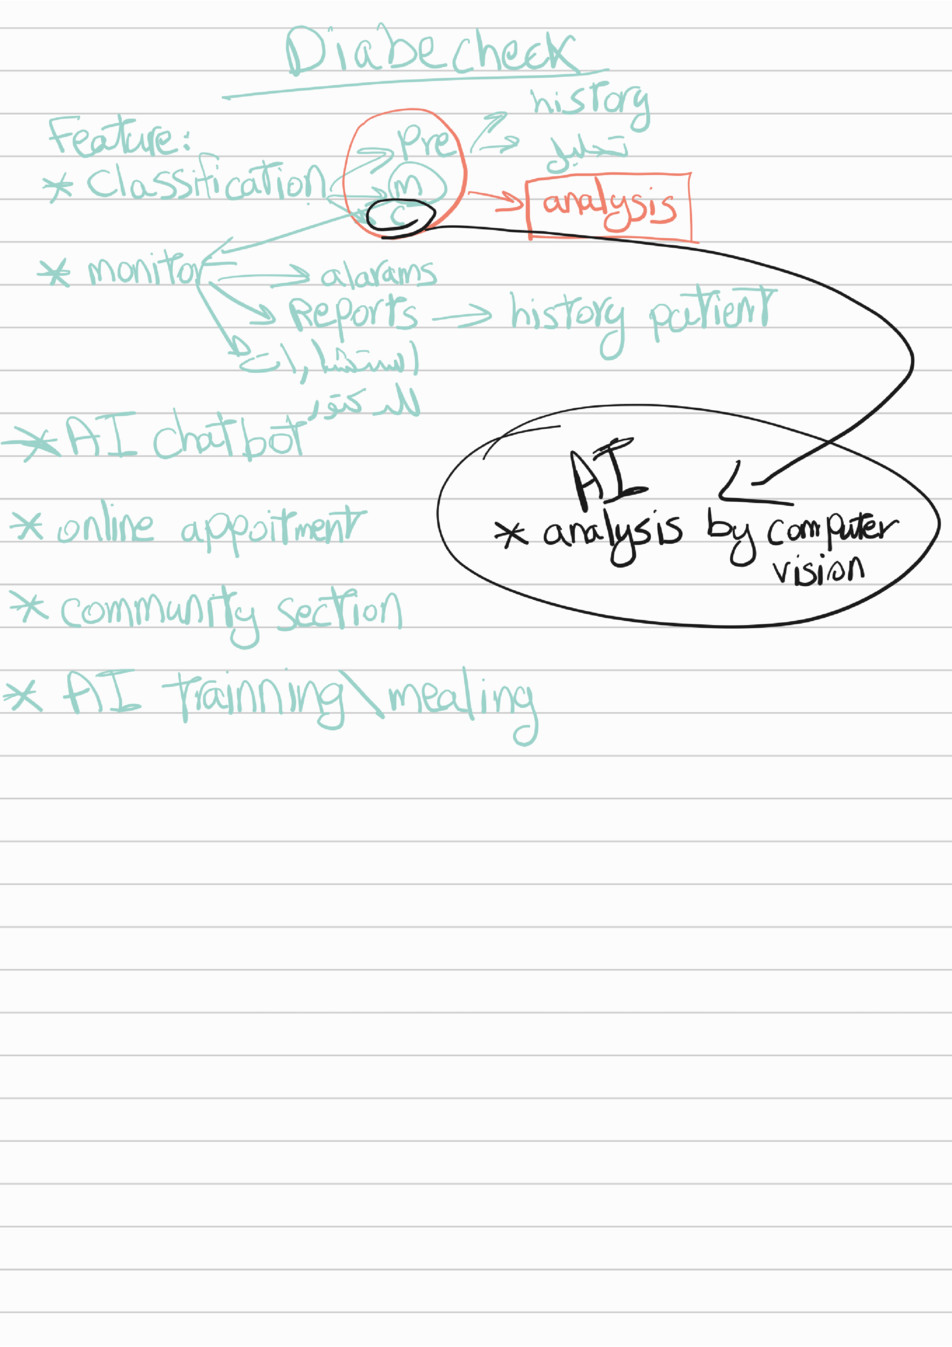 Diabecheck
history
Feature:
Pre
تحليل
* Classification
m
analysis
c
* monitor
alarams
Reports → history patient
استشارات
للدكتور
* AI chatbot
AI
* online appoitment
* analysis by computer
vision
* community section
* AI trainning\mealing